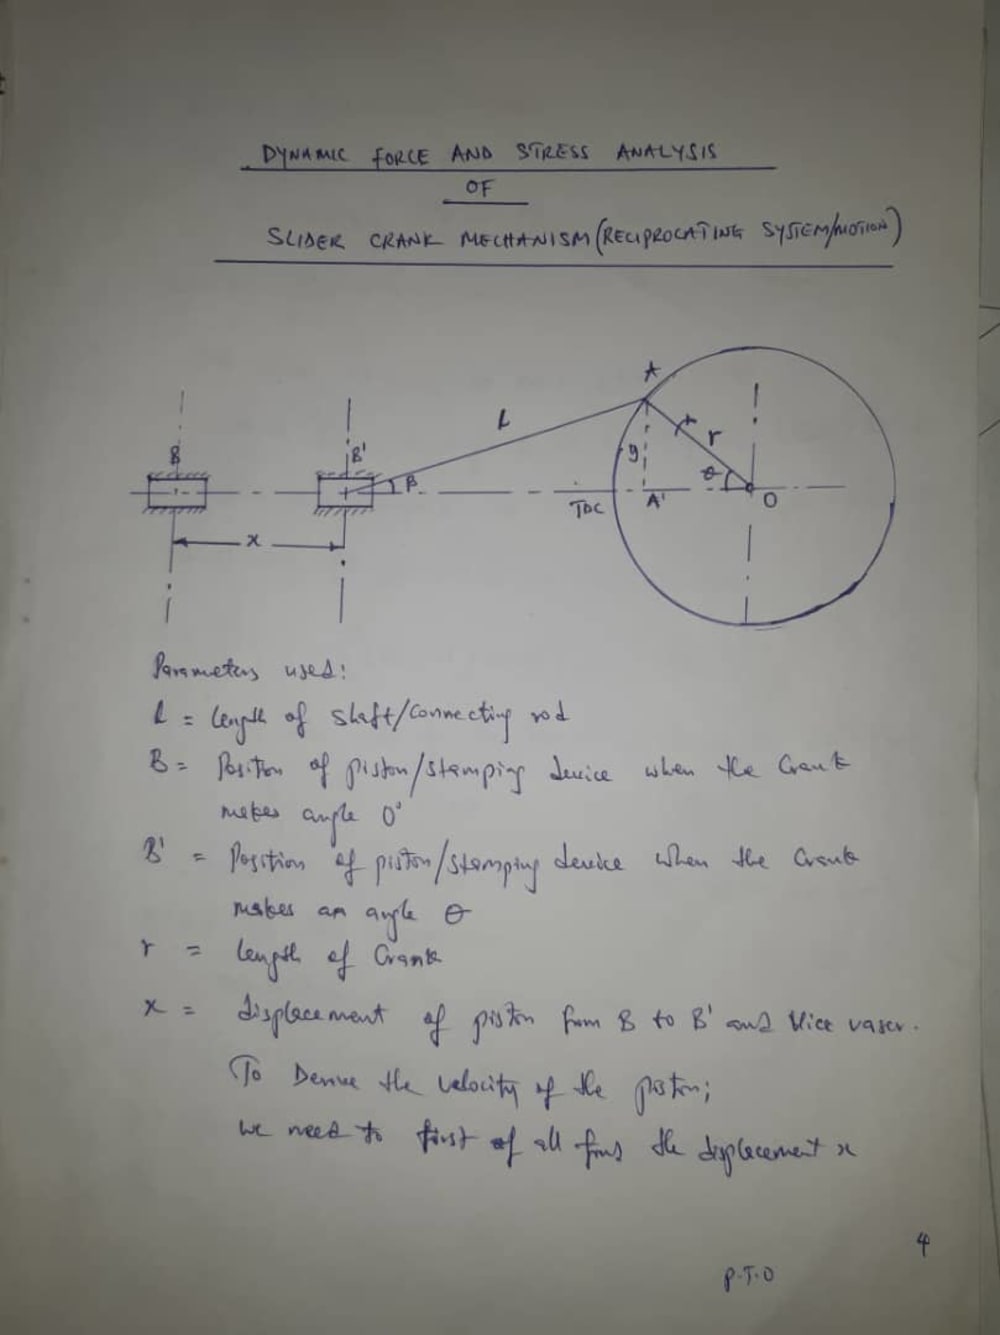 DYNAMIC FORCE AND STRESS ANALYSIS
OF
SLIDER CRANK MECHANISM (RECIPROCATING SYSTEM/MOTION)
A
L
r
B
B'
y
β
θ
TDC
A'
O
x
Parameters used:
L = length of shaft/connecting rod
B = Position of piston/stamping device when the Crank
makes angle 0°
B' = Position of piston/stamping device when the Crank
makes an angle θ
r = length of Crank
x = displacement of piston from B to B' and Vice vaser.
To Derive the velocity of the piston;
we need to first of all find the displacement x
4
P.T.O